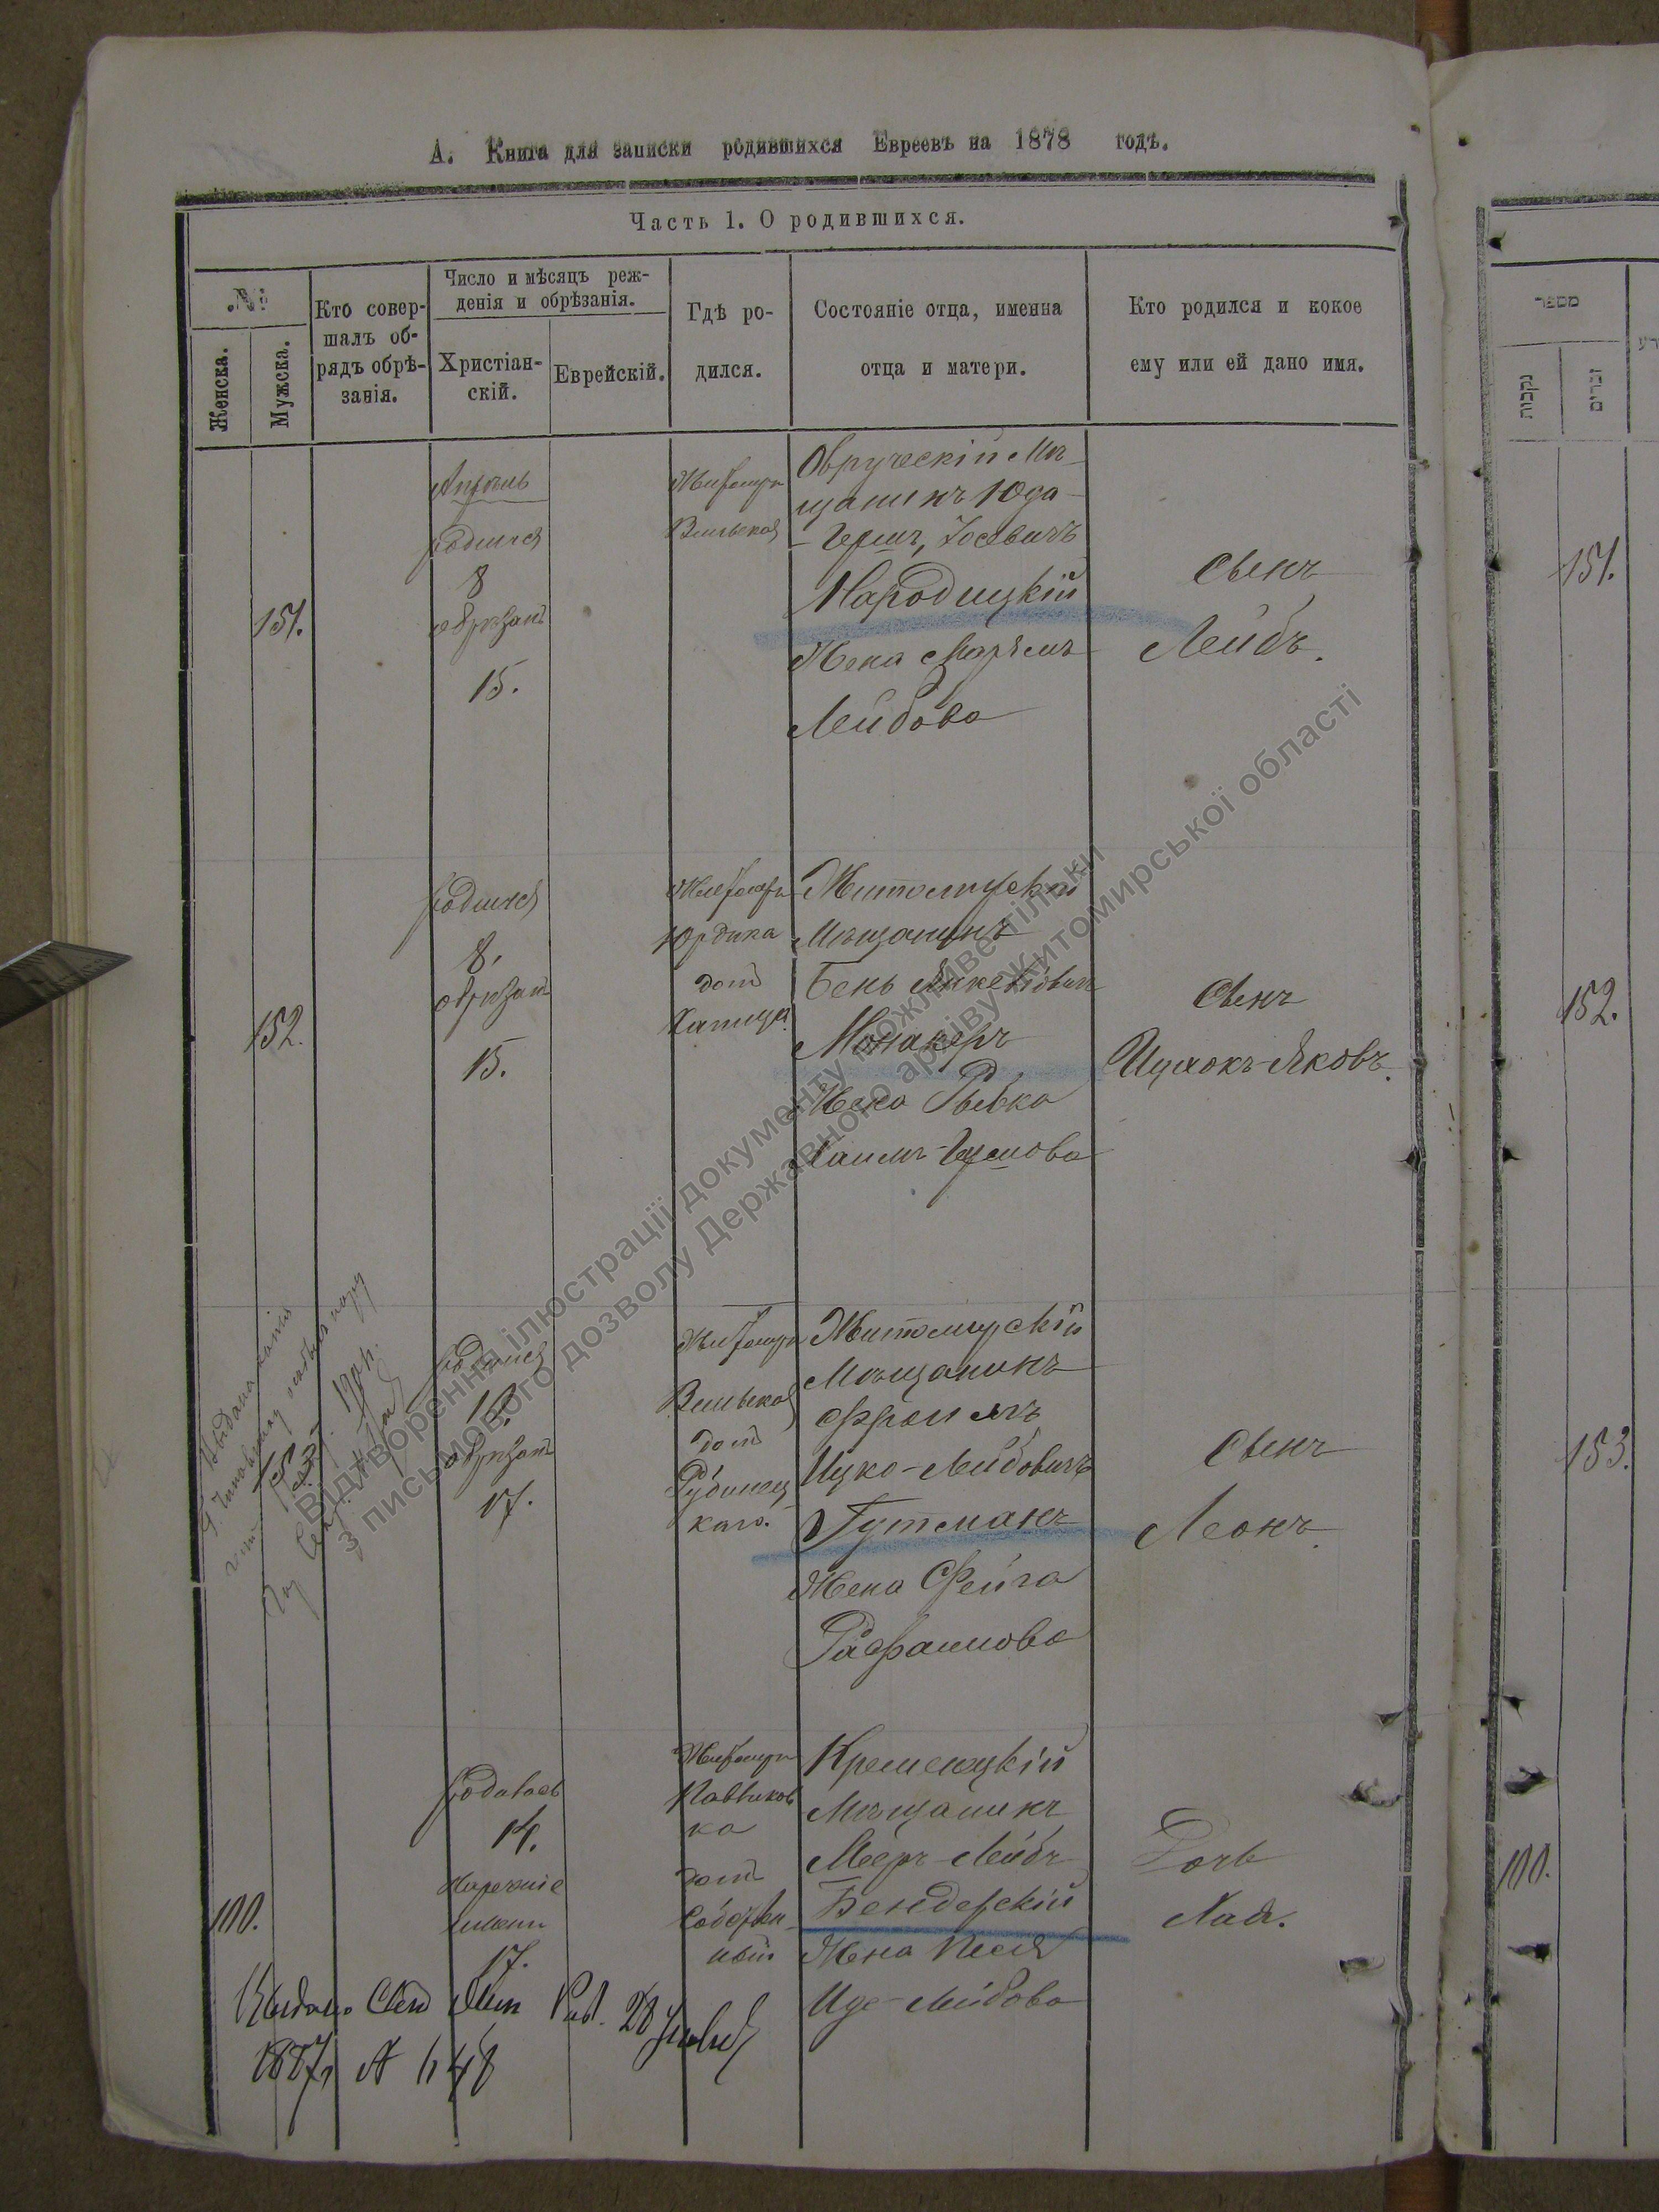 А. Книга для записки родившихся Евреевъ на 1878 годъ.
Часть 1. О родившихся.
№
Женска.
Мужска.
Кто совер-
шалъ об-
рядъ обрѣ-
занія.
Число и мѣсяцъ реж-
денія и обрѣзанія.
Христіан-
скій.
Еврейскій.
Гдѣ ро-
дился.
Состояніе отца, именна
отца и матери.
Кто родился и кокое
ему или ей дано имя.
מספר
נקבות
זכרים
151.
Апрѣль
родился
8
обрѣзанъ
15.
Житомиръ
Вильская
Овруческій Мѣ-
щанинъ Юда-
Герш, Іосевичъ
Народицкій
Жена Маріемъ
Лейбова
Сынъ
Лейбъ.
151.
152.
родился
8.
обрѣзанъ
15.
Житомиръ
Юрдика
домъ
Житомирскій
Мѣщанинъ
Бень
Монакеръ
Жена Рывка
Хаимъ-Гершова
Сынъ
Ицхокъ-Яковъ.
152.
153
родился
10.
обрѣзанъ
17.
Житомиръ
Вильская
домъ
Рубинец
каго.
Житомирскій
Мѣщанинъ
Фроимъ
Ицко-Лейбовичъ
Гутманъ
Жена Фейга
Рафаилова
Сынъ
Леонъ.
153.
100.
родилась
14.
Нареченіе
имени
17.
Житомиръ
Павликов
ка
домъ
Собствен-
ный
Кременецкій
Мѣщанинъ
Меeръ-Лейбъ
Бендерскій
Жена Песя
Иде-Лейбова
Дочь
Хая.
100.
Выдано
28
1887г № 1148
Відтворення ілюстрації документу можливе тільки
з письмового дозволу Державного архіву Житомирської області